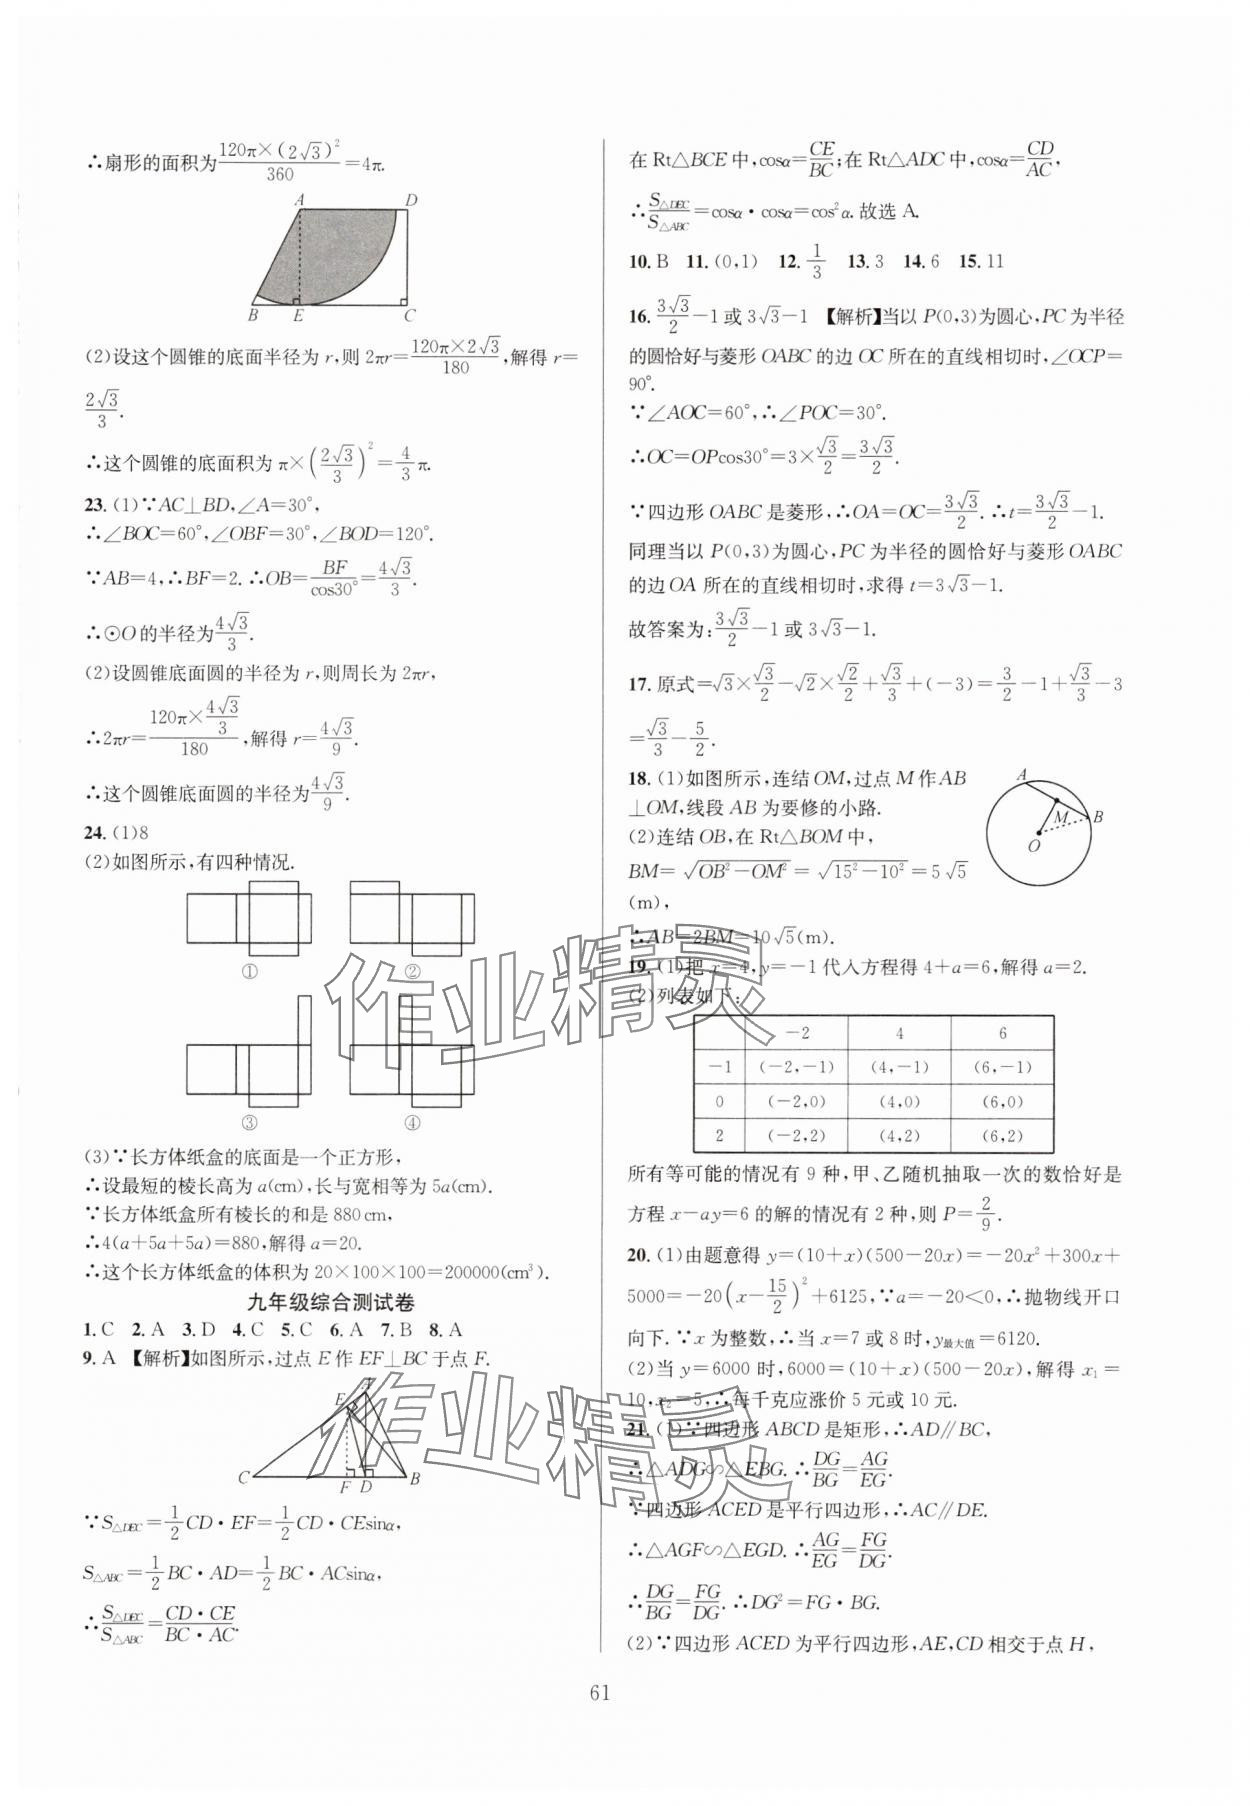 ∴扇形的面积为\frac{120π×(2√3)²}{360}=4π.
A D
B E C
(2)设这个圆锥的底面半径为 r,则 2πr=\frac{120π×2√3}{180},解得 r=
\frac{2√3}{3}.
∴这个圆锥的底面积为 π×(\frac{2√3}{3})²=\frac{4}{3}π.
23. (1)∵AC⊥BD,∠A=30°,
∴∠BOC=60°,∠OBF=30°,∠BOD=120°.
∵AB=4,∴BF=2. ∴OB=\frac{BF}{cos30°}=\frac{4√3}{3}.
∴⊙O 的半径为\frac{4√3}{3}.
(2)设圆锥底面圆的半径为 r,则周长为 2πr,
∴2πr=\frac{120π×\frac{4√3}{3}}{180},解得 r=\frac{4√3}{9}.
∴这个圆锥底面圆的半径为\frac{4√3}{9}.
24. (1)8
(2)如图所示,有四种情况.
① ②
③ ④
(3)∵长方体纸盒的底面是一个正方形,
∴设最短的棱长高为 a(cm),长与宽相等为 5a(cm).
∵长方体纸盒所有棱长的和是 880 cm,
∴4(a+5a+5a)=880,解得 a=20.
∴这个长方体纸盒的体积为 20×100×100=200000(cm³).
九年级综合测试卷
1. C 2. A 3. D 4. C 5. C 6. A 7. B 8. A
9. A 【解析】如图所示,过点 E 作 EF⊥BC 于点 F.
A
E
C F D B
∵S△DEC=\frac{1}{2}CD·EF=\frac{1}{2}CD·CEsinα,
S△ABC=\frac{1}{2}BC·AD=\frac{1}{2}BC·ACsinα,
∴\frac{S△DEC}{S△ABC}=\frac{CD·CE}{BC·AC}.
在 Rt△BCE 中,cosα=\frac{CE}{BC};在 Rt△ADC 中,cosα=\frac{CD}{AC},
∴\frac{S△DEC}{S△ABC}=cosα·cosα=cos²α.故选 A.
10. B 11. (0,1) 12. \frac{1}{3} 13. 3 14. 6 15. 11
16. \frac{3√3}{2}-1 或 3√3-1 【解析】当以 P(0,3)为圆心,PC 为半径
的圆恰好与菱形 OABC 的边 OC 所在的直线相切时,∠OCP=
90°.
∵∠AOC=60°,∴∠POC=30°.
∴OC=OPcos30°=3×\frac{√3}{2}=\frac{3√3}{2}.
∵四边形 OABC 是菱形,∴OA=OC=\frac{3√3}{2}. ∴t=\frac{3√3}{2}-1.
同理当以 P(0,3)为圆心,PC 为半径的圆恰好与菱形 OABC
的边 OA 所在的直线相切时,求得 t=3√3-1.
故答案为:\frac{3√3}{2}-1 或 3√3-1.
17. 原式=√3×\frac{√3}{2}-√2×\frac{√2}{2}+\frac{√3}{3}+(-3)=\frac{3}{2}-1+\frac{√3}{3}-3
=\frac{√3}{3}-\frac{5}{2}.
18. (1)如图所示,连结 OM,过点 M 作 AB
⊥OM,线段 AB 为要修的小路.
(2)连结 OB,在 Rt△BOM 中,
BM=√(OB²-OM²)=√(15²-10²)=5√5
(m),
∴AB=2BM=10√5(m).
A
M B
O
19. (1)把 x=4,y=-1 代入方程得 4+a=6,解得 a=2.
(2)列表如下:
-2 4 6
-1 (-2,-1) (4,-1) (6,-1)
0 (-2,0) (4,0) (6,0)
2 (-2,2) (4,2) (6,2)
所有等可能的情况有 9 种,甲、乙随机抽取一次的数恰好是
方程 x-ay=6 的解的情况有 2 种,则 P=\frac{2}{9}.
20. (1)由题意得 y=(10+x)(500-20x)=-20x²+300x+
5000=-20(x-\frac{15}{2})²+6125,∵a=-20<0,∴抛物线开口
向下.∵x 为整数,∴当 x=7 或 8 时,y最大值=6120.
(2)当 y=6000 时,6000=(10+x)(500-20x),解得 x₁=
10,x₂=5,∴每千克应涨价 5 元或 10 元.
21. (1)∵四边形 ABCD 是矩形,∴AD∥BC,
∴△ADG∽△EBG. ∴\frac{DG}{BG}=\frac{AG}{EG}.
∵四边形 ACED 是平行四边形,∴AC∥DE.
∴△AGF∽△EGD. ∴\frac{AG}{EG}=\frac{FG}{DG}.
∴\frac{DG}{BG}=\frac{FG}{DG}. ∴DG²=FG·BG.
(2)∵四边形 ACED 为平行四边形,AE,CD 相交于点 H,
61
作业精灵
作业精灵